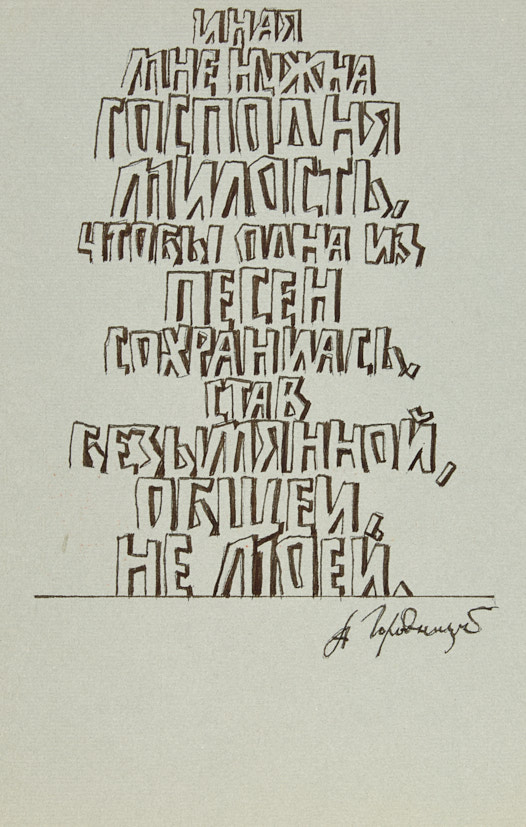 ИНАЯ
МНЕ НУЖНА
ГОСПОДНЯ
МИЛОСТЬ,
ЧТОБЫ ОДНА ИЗ
ПЕСЕН
СОХРАНИЛАСЬ,
СТАВ
БЕЗЫМЯННОЙ,
ОБЩЕЙ,
НЕ МОЕЙ.
А Городницкий